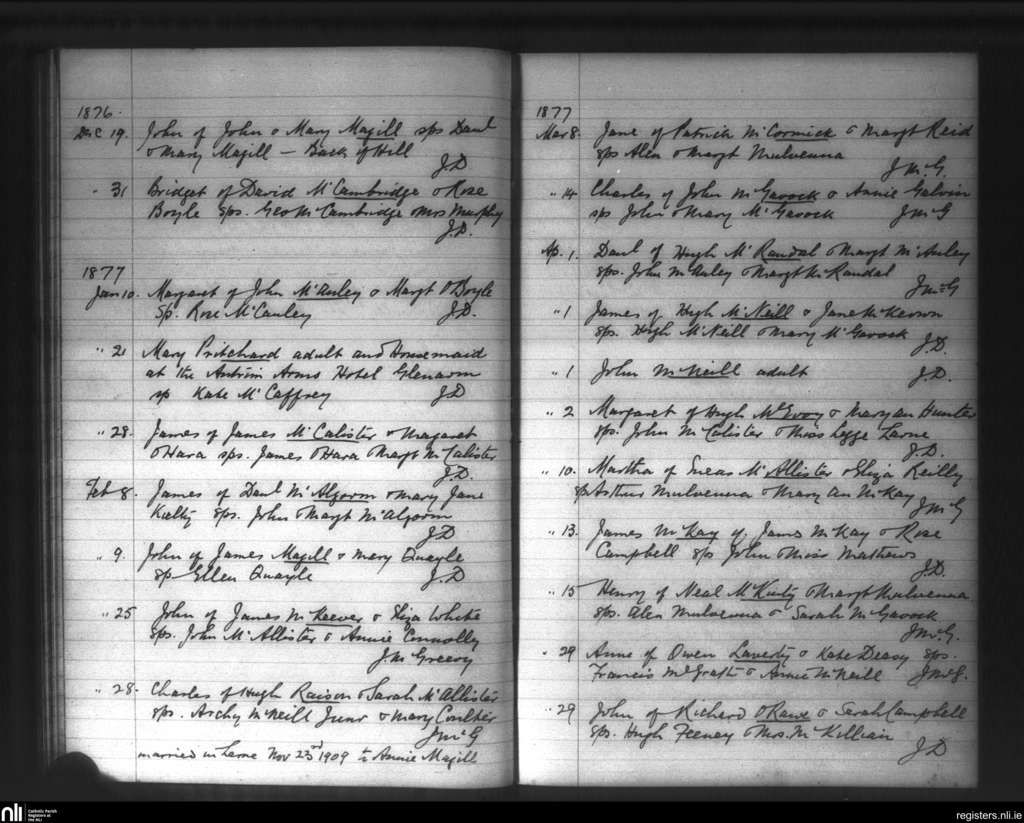 1876.
Dec 19. John of John & Mary Magill sps Danl
& Mary Magill — Back of Hill
J.D
" 31 Bridget of David McCambridge & Rose
Boyle sps. Geo McCambridge & Mrs Murphy
J.D.
1877
Jan 10. Margaret of John McAuley & Margt O'Boyle
Sp. Rose McCauley J.D.
" 21 Mary Pritchard adult and Housemaid
at the Antrim Arms Hotel Glenarm
sp Kate McCaffrey J.D
" 28. James of James McCalister & Margaret
O'Hara sps. James O'Hara & Margt McCalister
J.D.
Feb 8. James of Danl McAlgorm & Mary Jane
Kielty sps. John & Margt McAlgorm
J.D
" 9. John of James Magill & Mary Quayle
sp Ellen Quayle J.D
" 25 John of James McKeever & Eliza White
sps. John McAllister & Annie Connolly
J. McGreevy
" 28. Charles of Hugh Raison & Sarah McAllister
sps. Archy McNeill Junr & Mary Coulter
J McG
married in Larne Nov 23rd 1909 to Annie Magill
1877
Mar 8. Jane of Patrick McCormick & Margt Reid
sps Alex & Margt Mulvenna
J McG.
" 14 Charles of John McGavock & Annie Galvin
sps John & Mary McGavock J McG
Ap. 1. Danl of Hugh McRandal & Margt McAuley
sps. John McAuley & Margt McRandal
J McG
" 1 James of Hugh McNeill & Jane McKeown
sps. Hugh McNeill & Mary McGavock
J.D.
" 1 John McNeill adult J.D.
" 2 Margaret of Hugh McEvoy & Mary an Hunter
sps. John McCalister & Miss Legge Larne
J.D.
" 10. Martha of Eneas McAllister & Eliza Reilly
sp Arthur Mulvenna & Mary An McKay
J McG
" 13. James McKay of James McKay & Rose
Campbell sps John & Miss Mathews
J.D.
" 15 Henry of Neal McKinty & Margt Mulvenna
sps. Alex Mulvenna & Sarah McGavock
J McG.
" 29 Anne of Owen Laverty & Kate Deasy sps.
Francis McGrath & Annie McNeill J McG.
" 29 John of Richard O'Rawe & Sarah Campbell
sps. Hugh Feeney & Mrs. McKillian
J D
nli
Catholic Parish
Registers at
the NLI
registers.nli.ie